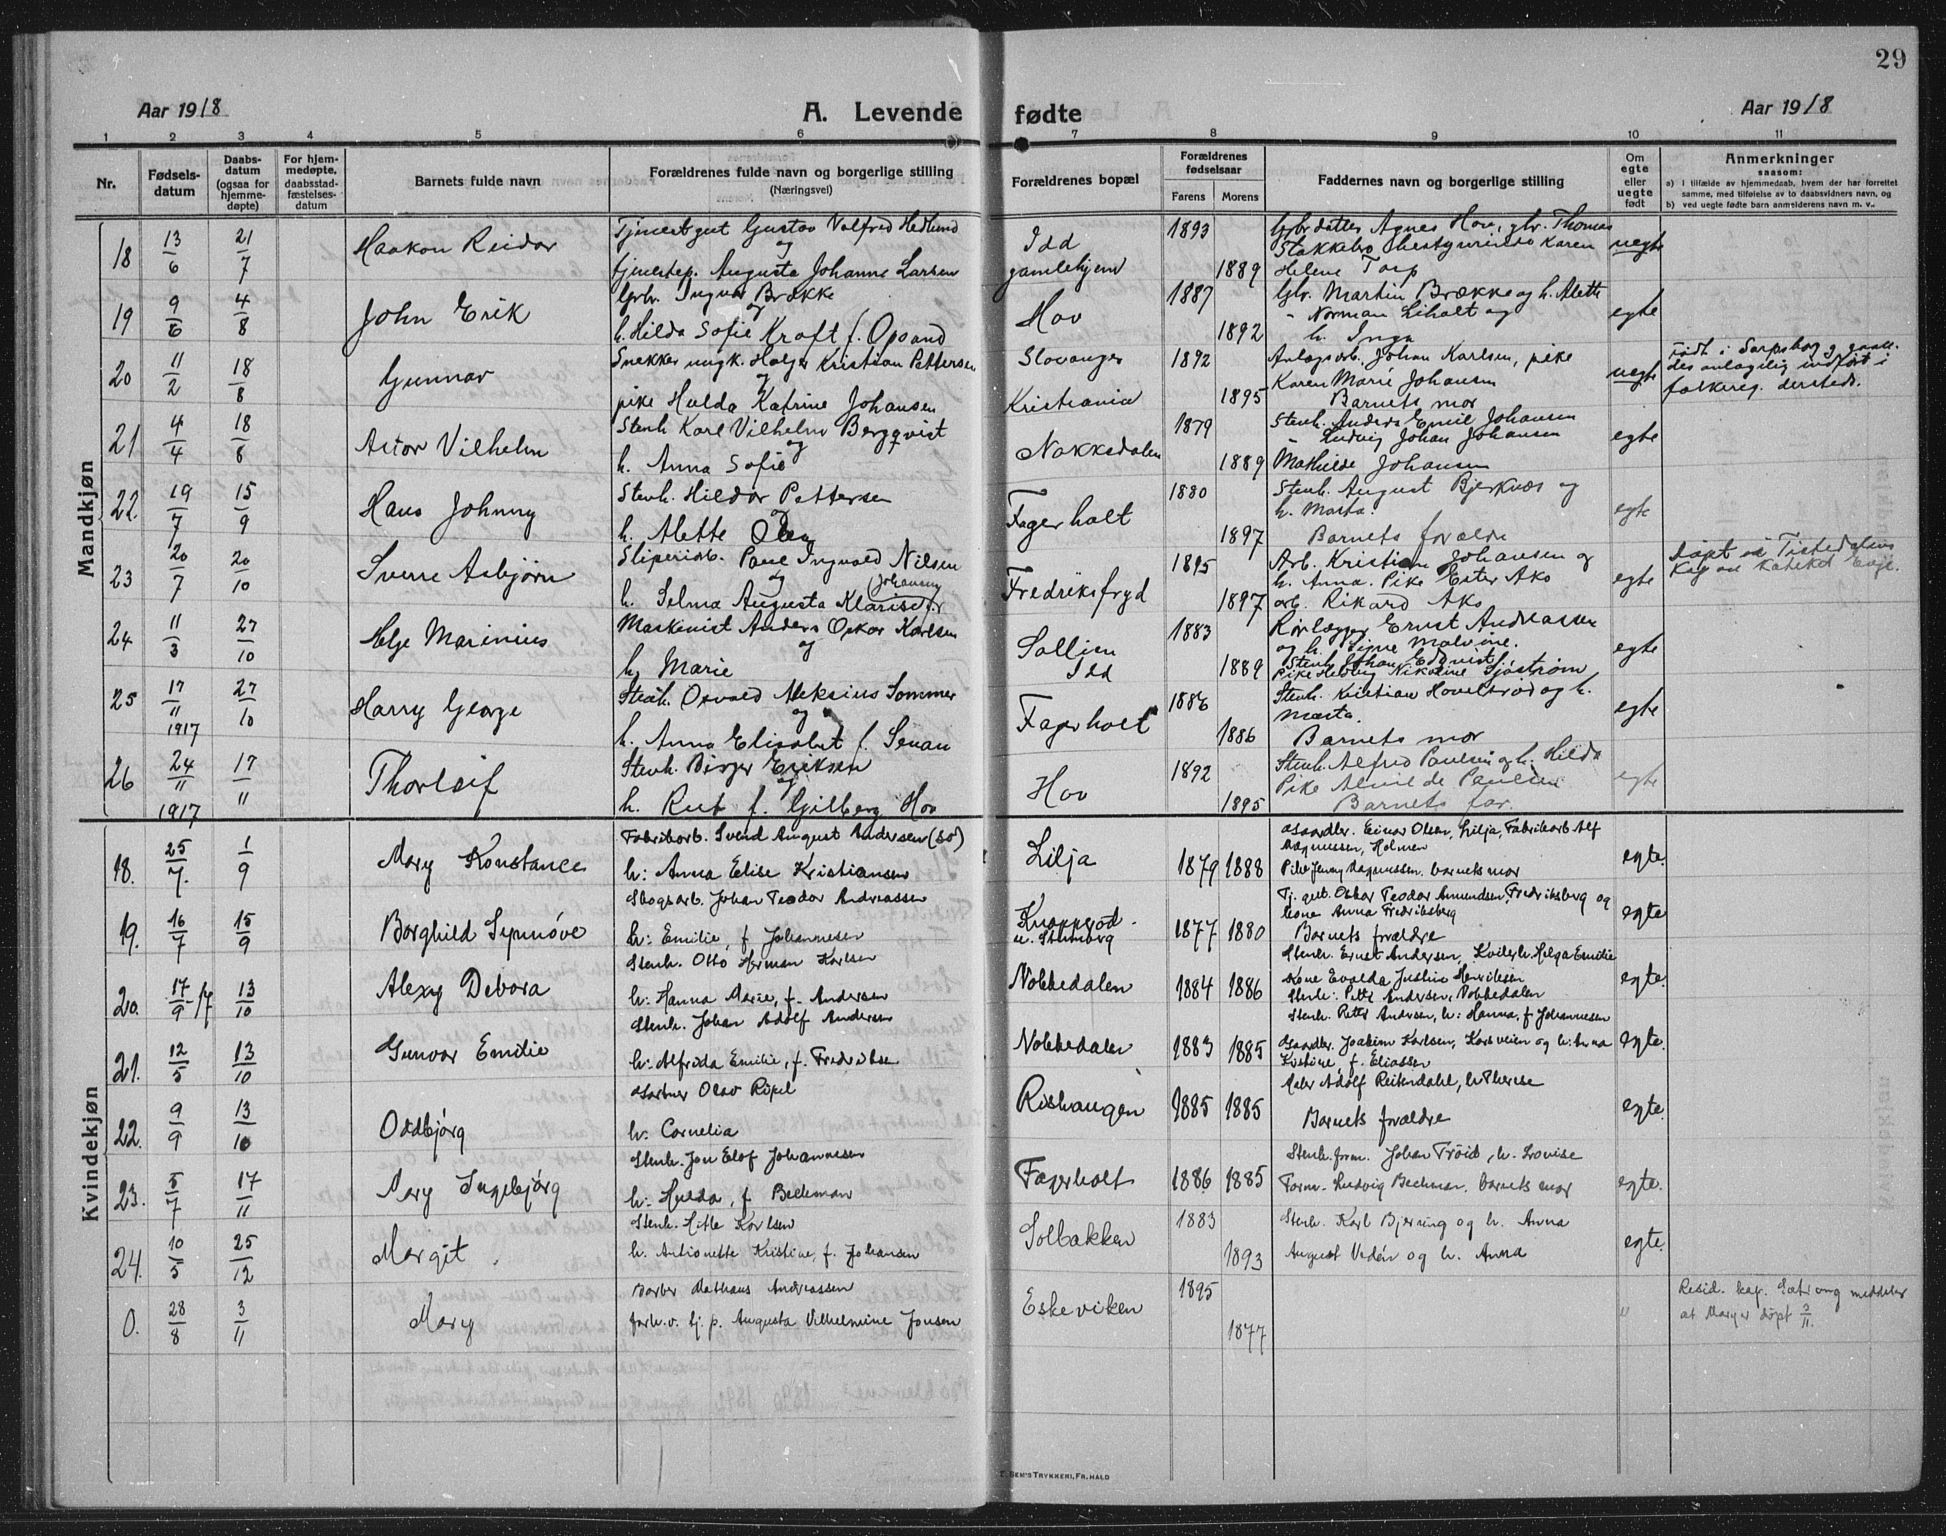 29
Aar 1918
A. Levende
fødte
Aar 1918
1 2 3 4 5 6 7 8 9 10 11
Nr.
Fødsels-
datum
Daabs-
datum
(ogsaa for
hjemme-
døpte)
For hjem-
medøpte,
daabsstad-
fæstelses-
datum
Barnets fulde navn
Forældrenes fulde navn og borgerlige stilling
(Næringsvei)
Forældrenes bopæl
Forældrenes
fødselsaar
Farens Morens
Faddernes navn og borgerlige stilling
Om
egte
eller
uegte
født
Anmerkninger
saasom:
a) i tilfælde av hjemmedaab, hvem der har forrettet
samme, med tilføielse av to daabsvidners navn, og
b) ved uegte fødte barn anmelderens navn m. v.
Mandkjøn
18 13/6 21/7 Haakon Reidar
Tjenestgut Gustav Valfred Hedlund
og
tjenestep. Augusta Johanne Larsen
Idd
gamlehjem
1893
1889
Agnes Hov, gbr. Thomas
Stakkebo bestyrerinde Karen
Helene Torp
uegte
19 9/6 4/8 John Erik
Grbr. Ingvar Brække
og
h. Hilda Sofie Kroft f. Opsand
Hov
1887
1892
Gbr. Martin Brække og h. Alette
" Norman Liholt og
h. Inga
egte
20 11/2 18/8 Gunnar
Snekker ungk. Holger Kristian Pettersen
og
pike Hulda Katrine Johansen
Slevanger
Kristiania
1892
1895
Anlagsarb. Johan Karlsen, pike
Karen Marie Johansen
Barnets mor
uegte
Født i Sarpsborg og
des anlagilig indført i
folkereg. dersteds.
21 4/4 18/8 Astor Vilhelm
Stenh. Karl Vilhelm Bergqvist
og
h. Anna Sofie
Nakkedalen
1879
1889
Stenh. Anders Emil Johansen
" Ludvig Johan Johansen
Mathilde Johansen
egte
22. 19/7 15/9 Hans Johnny
Stenh. Hildor Pettersen
og
h. Alette Olsen
Fagerholt
1880
1897
Stenh. August Bjerknæs og
h. Marta.
Barnets forældre
egte
23 20/7 20/10 Sverre Asbjørn
Sliperiarb. Paul Ingvald Nilsen
og
h. Selma Augusta Klarise f. Johansen
Fredriksfryd
1895
1897
Arb. Kristian Johansen og
h. Anna. Pike Ester Ako
arb. Rikard Ako
egte
døpt ved Tistedalens
Kap av kateket Enge.
24 11/3 27/10 Helge Marinius
Maskinist Anders Oskar Karlsen
og
h. Marie
Sollien
Idd
1883
1889
Rørlegger Ernst Andreassen
og h. Signe Malvine.
Stenh. Johan Edqvist
Pike Hedvig Nikoline Sjöström
egte
25 17/11 1917 27/10 Harry George
Stenh. Osvald Aleksius Sommer
og
h. Anna Elisabet f. Senan
Fagerholt
1886
1886
Stenh. Kristian Hovelsrød og h.
Marta.
Barnets mor
egte
26 24/11 1917 17/11 Thorleif
Stenh. Birger Eriksen
og
h. Rut f. Gilberg Hov
Hov
1892
1895
Stenh. Alfred Paulsen og h. Hilda
Pike Almilde Paulsen
Barnets far.
egte
Kvindekjøn
18. 25/7. 1/9 Mary Konstance
Fabrikarb. Svend August Andersen (so)
h: Anna Elise Kristiansen
Lilja
1879 1888
Gaardbr. Einar Olsen, Lilja, Fabrikarb Alf
Magnussen, Holmen
Pike Jenny Magnussen, barnets mor
egte.
19. 16/7 15/9 Borghild Synnøve
Skogsarb. Johan Teodor Andreassen
h: Emilie, f. Johannesen
Knapperød.
u. Stenborg
1877 1880
Tj. gut. Oskar Teodor Amundsen, Fredriksberg og
kone Anna Fredriksberg
Barnets forældre
egte
20. 17/9 - 17 13/10 Alexy Debora
Stenh. Otto Herman Karlsen
h: Hanna Marie, f. Andersen
Nokkedalen
1884 1886
Stenh. Ernst Andersen, Kvilerh. Helga Emilie
Kone Evalda Justine Henriksen
Stenh: Petter Andersen, Nokkedalen
egte.
21. 12/5 13/10 Gunvor Emilie
Stenh. Johan Adolf Andersen
h: Alfrida Emilie, f. Fredrikse
Nokkedalen
1883 1885
Stenh. Petter Andersen, h: Hanna, f Johannesen
Gaardbr. Joakim Karlsen, Korsveien og h: Anna
Kristine, f. Eliassen
egte.
22. 9/9 13/10 Oddbjørg
Gartner Olav Ripel
h: Cornelia
Rishaugen
1885 1885
Maler Adolf Reitendahl, h: Therese
Barnets forældre
egte.
23. 5/7 17/11 Mary Ingebjørg
Stenh. Jon Elof Johannesen
h: Hulda, f Beckman
Fagerholt
1886 1885
Stenh.form. Johan Trøid, h. Lovise
Form. Ludvig Beckman. barnets mor
egte.
24. 10/5 25/12 Margit.
Stenh. Hitle Karlsen
h. Antionette Kristine, f. Johansen
Solbakken
1883
1893
Stenh. Karl Bjerring og h. Anna
August Vedén og h. Anna
egte.
0. 28/8 3/11 Mary
Barber Mathæus Andreassen
forh.v. tj. p. Augusta Vilhelmine Jensen
Eskeviken
1895
1877
"
Resid. kap. Sætrang meddeler
at Mary er døpt 3/11.
E. SEM'S TRYKKERI, FR.HALD